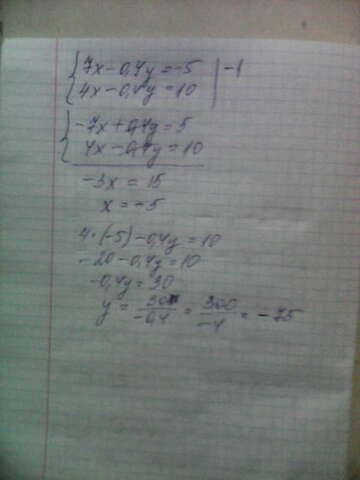 7x-0,4y=-5 | -1
4x-0,4y=10
-7x+0,4y=5
4x-0,4y=10
-3x=15
x=-5
4·(-5)-0,4y=10
-20-0,4y=10
-0,4y=30
y=30/-0,4=300/-4=-75